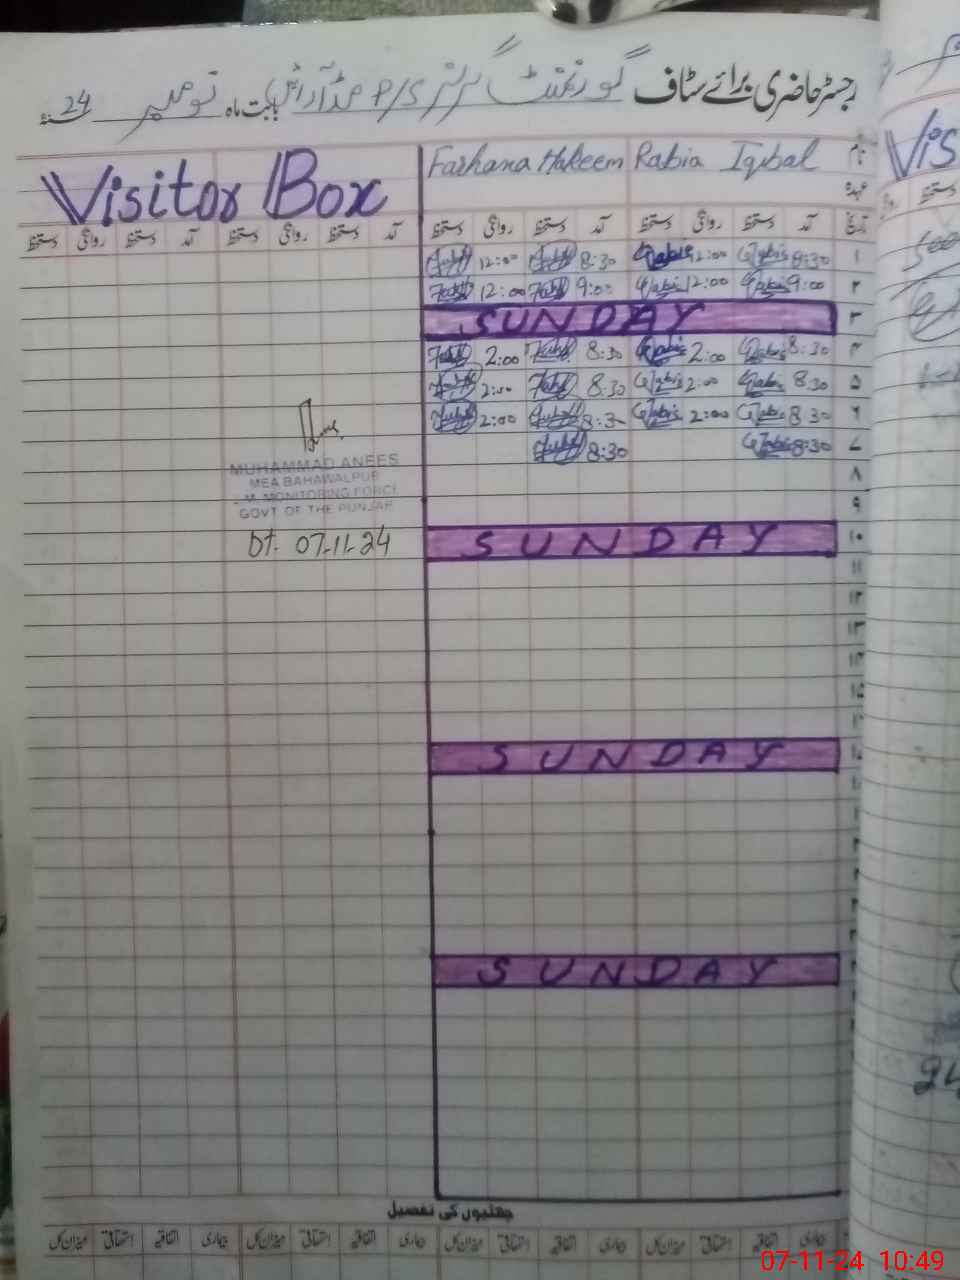 رجسٹر حاضری برائے سٹاف گورنمنٹ گرلز P/S بابت ماہ نومبر 24
Visitor Box
Farhana Hakeem Rabia Iqbal نام
عہدہ
دستخط روانگی دستخط آمد دستخط روانگی دستخط آمد دستخط روانگی دستخط آمد دستخط روانگی دستخط آمد تاریخ
12:00 8:30 Rabia 12:00 Rabia 8:30 ۱
12:00 9:00 Rabia 12:00 Rabia 9:00 ۲
SUNDAY ۳
2:00 8:30 Rabia 2:00 Rabia 8:30 ۴
2:00 8:30 Rabia 2:00 Rabia 8:30 ۵
2:00 8:30 Rabia 2:00 Rabia 8:30 ۶
8:30 Rabia 8:30 ۷
MUHAMMAD ANEES
MEA BAHAWALPUR
C.M. MONITORING FORCE
GOVT OF THE PUNJAB
Dt. 07-11-24
۸
۹
SUNDAY ۱۰
۱۱
۱۲
۱۳
۱۴
۱۵
SUNDAY
SUNDAY
چھٹیوں کی تفصیل
میزان کل استحقاقی اتفاقیہ بیماری میزان کل استحقاقی اتفاقیہ بیماری میزان کل استحقاقی اتفاقیہ بیماری میزان کل استحقاقی اتفاقیہ بیماری
Vis
24
07-11-24 10:49